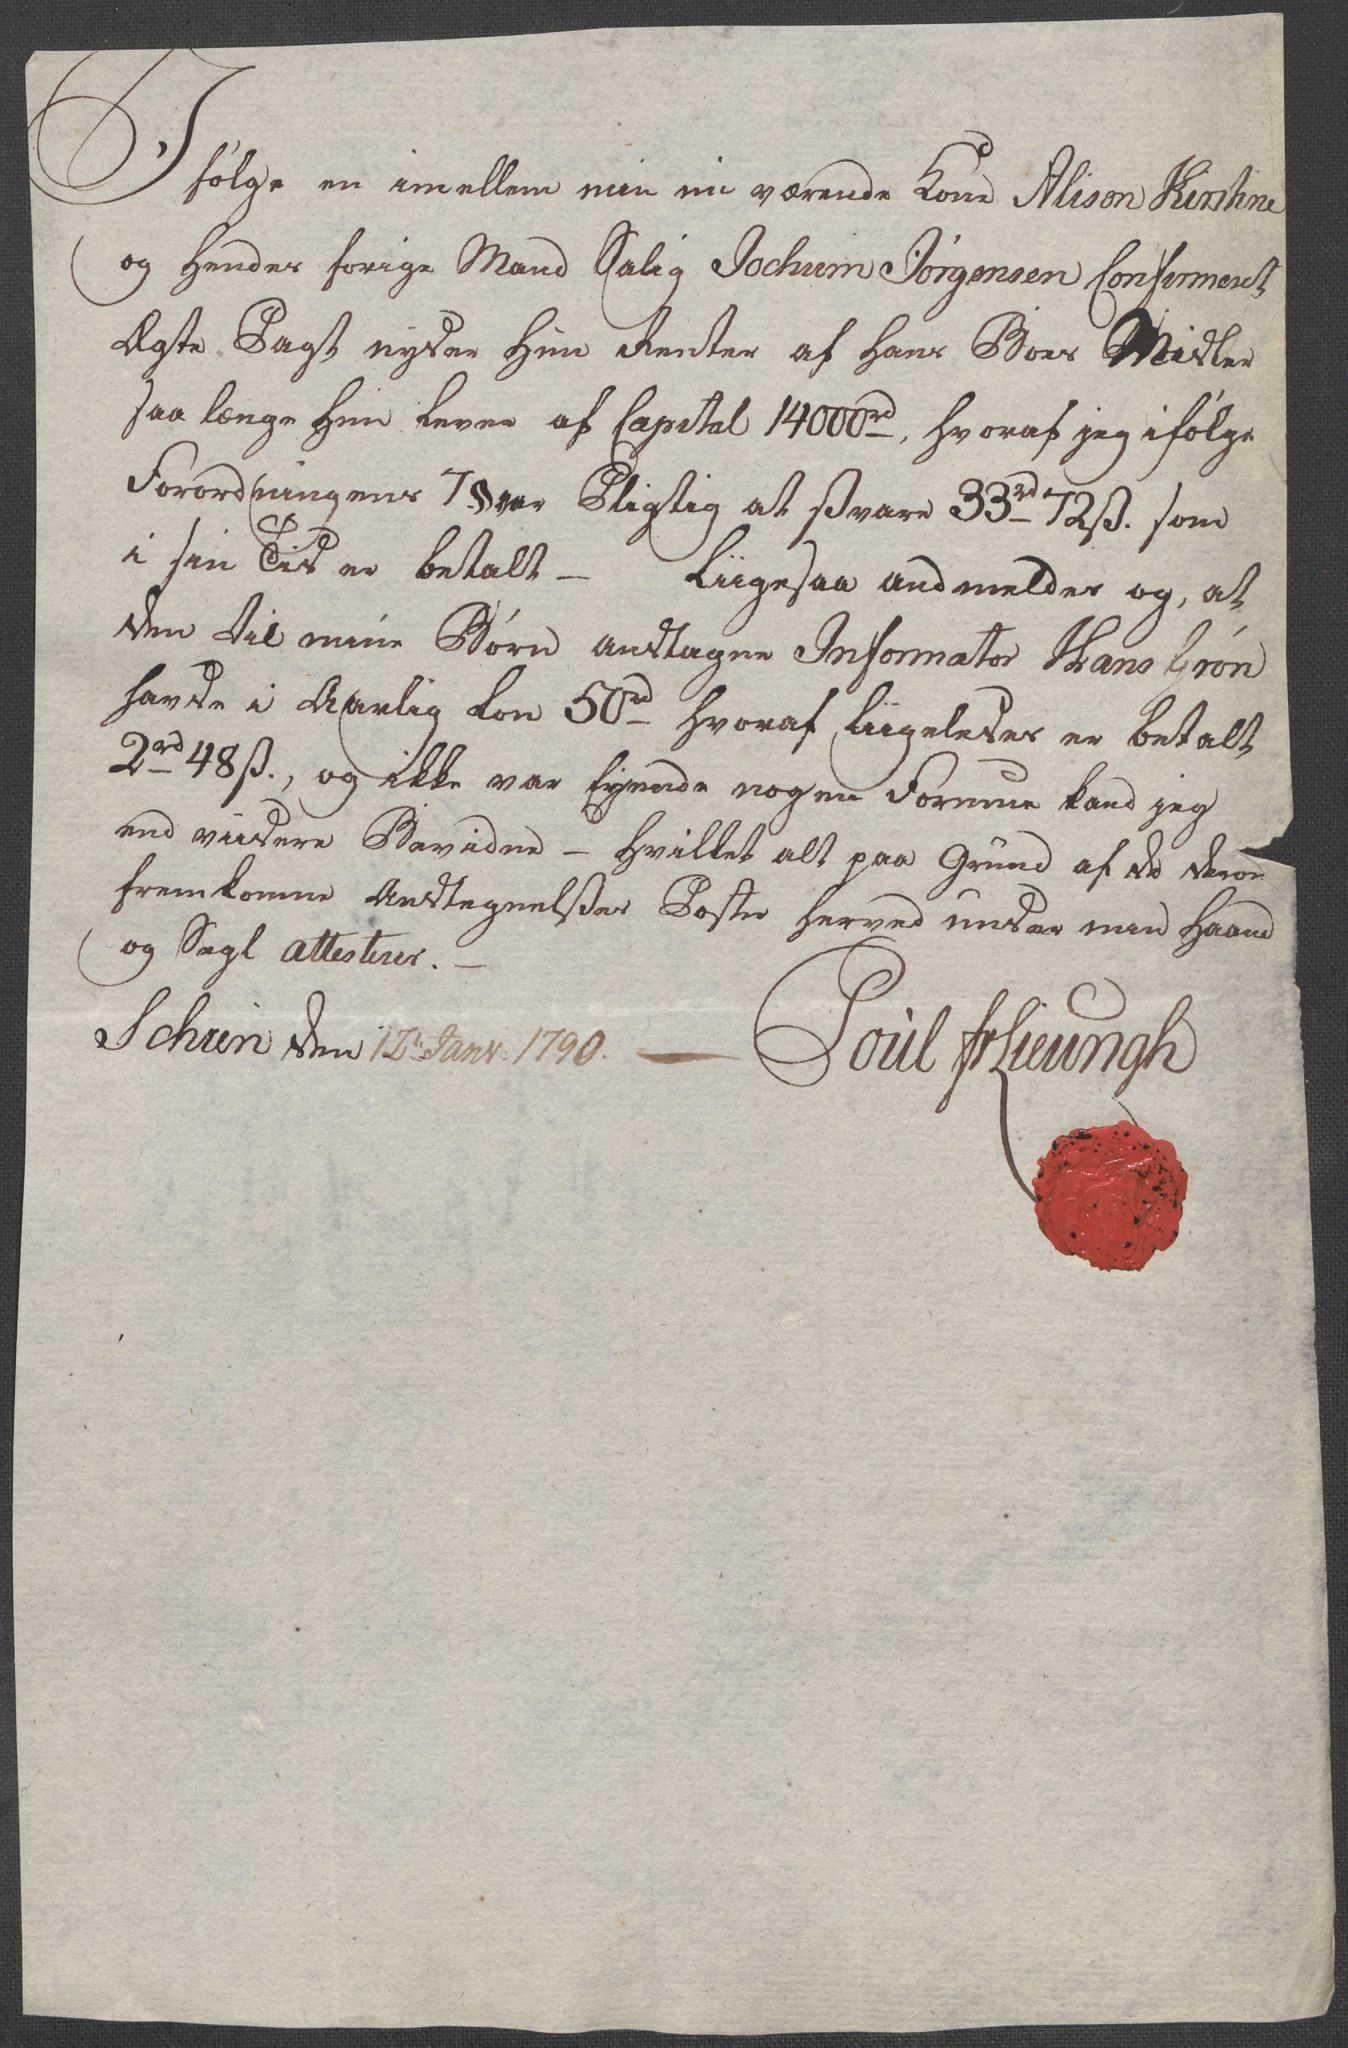 Ifølge en imellem min nu værende Kone Alison Kirstine
og hendes forige Mand Salig Jochum Jørgensen Confirmert
Ægte Pagt nyder hun Renter af hans Boes Midler
saa længe hun lever af Capital 14000rd, hvoraf jeg ifølge
Forordningens 7 § var Pligtig at svare 33rd 72ß. som
i sin Tid er betalt – Liigesaa andmeldes og, at
den til mine Børn andtagne Informator Hans Grøn
havde i Aarlig Løn 50rd hvoraf Liigeledes er betalt
2rd 48ß., og ikke var Eyende nogen Formue kand jeg
end viidere Bevidne – hvilket alt paa Grund af de derom
fremkomne Andtegnelßes Poster herved under min Haand
og Segl attesterer. –
Schien den 12te Janv: 1790. Poul Lieungh